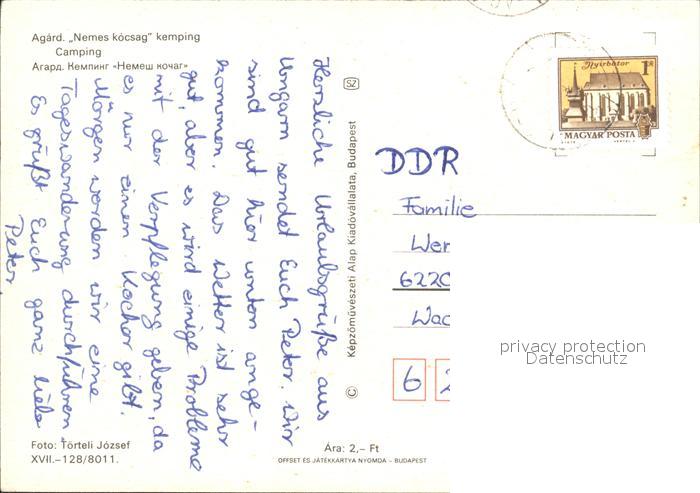 Agárd. „Nemes kócsag” kemping
Camping
Агард. Кемпинг «Немеш кочаг»
Herzliche Urlaubsgrüße aus
Ungarn sendet Euch Peter. Wir
sind gut hier unten ange-
kommen. Das Wetter ist sehr
gut, aber es wird einige Probleme
mit der Verpflegung geben, da
es nur einen Kocher gibt.
Morgen werden wir eine
Tageswanderung durchführen.
Es grüßt Euch ganz liebe
Peter
Foto: Törteli József
XVII.–128/8011.
Ára: 2,– Ft
OFFSET ÉS JÁTÉKKÁRTYA NYOMDA – BUDAPEST
© Képzőművészeti Alap Kiadóvállalata, Budapest
SZ
Nyírbátor
1Ft
MAGYAR POSTA
DDR
Familie
Wer
6220
Wac
6 2
privacy protection
Datenschutz